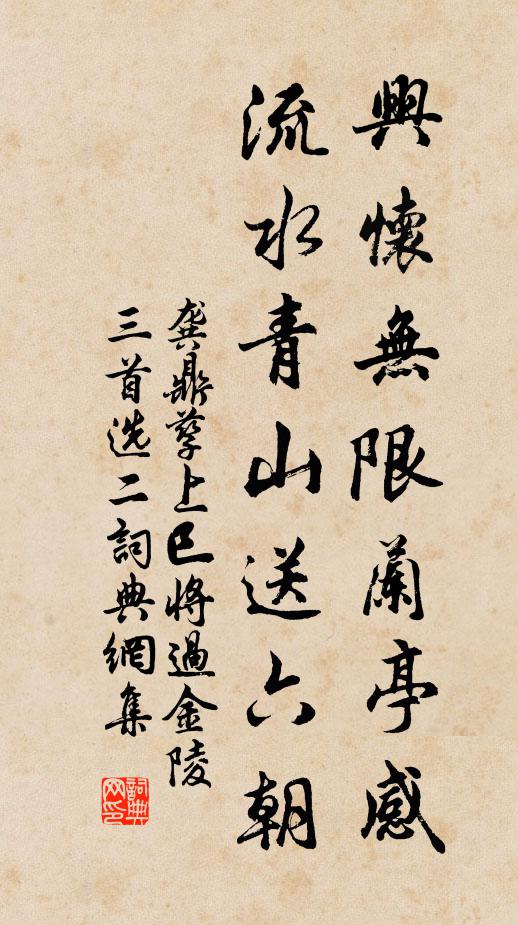 興懷無限蘭亭感
流水青山送六朝
龔鼎孳上巳將過金陵
三首选二詞典網集
詞典网印